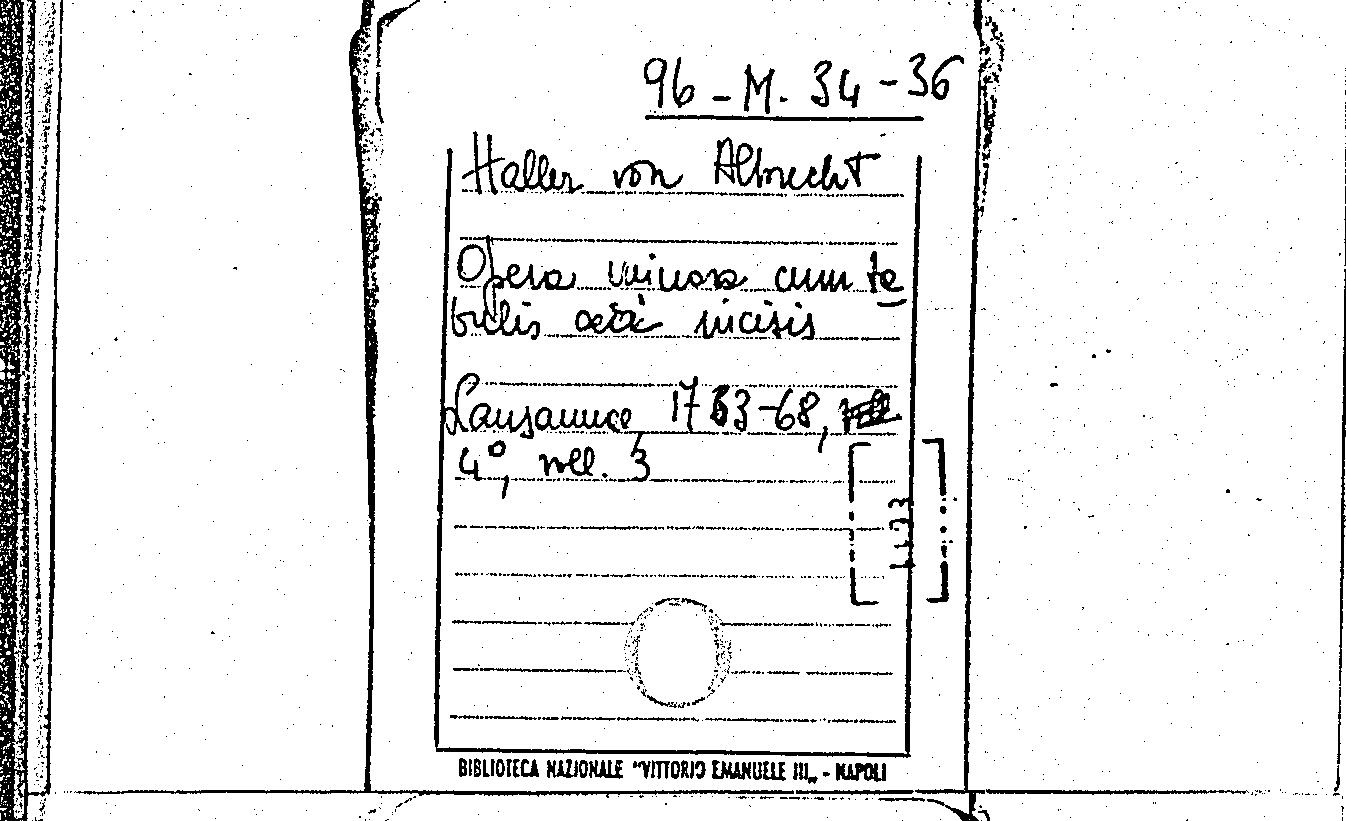 96 - M. 34 - 36
Haller von Albrecht
Opera minora cum ta
bulis incisis
Lausannae 1763-68,
4°, voll. 3
BIBLIOTECA NAZIONALE "VITTORIO EMANUELE III„ - NAPOLI